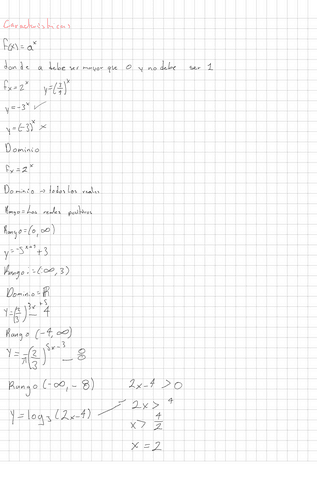 Características
F(x) = a^x
donde a debe ser mayor que 0 y no debe ser 1
Fx = 2^x y = (3/4)^x
y = -3^x ✓
y = (-3)^x ×
Dominio
Fx = 2^x
Dominio → todos los reales
Rango = Los reales positivos
Rango = (0, ∞)
y = -3^x+4 + 3
Rango: = (∞, 3)
Dominio = ℝ
Rango (-4, ∞)
Rango (-∞, -8)
y = log₃(2x-4)
2x-4 > 0
2x > 4
x > 4/2
x = 2